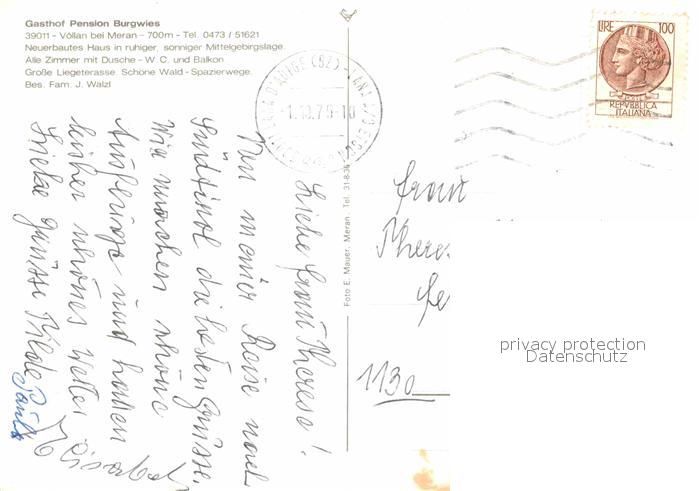 Gasthof Pension Burgwies
39011 - Völlan bei Meran - 700m - Tel. 0473 / 51621
Neuerbautes Haus in ruhiger, sonniger Mittelgebirgslage.
Alle Zimmer mit Dusche - W. C. und Balkon
Große Liegeterasse. Schöne Wald - Spazierwege.
Bes. Fam. J. Walzl
Liebe Frau Theresa!
Von meiner Reise nach
Südtirol die besten Grüsse.
Wir machen schöne
Ausflüge und haben
leider schönes Wetter
Liebe Grüsse Hilde
Foto E. Mauer, Meran, Tel. 31-8-36
LIRE 100
REPVBBLICA
ITALIANA
Frau
There
1130
privacy protection
Datenschutz